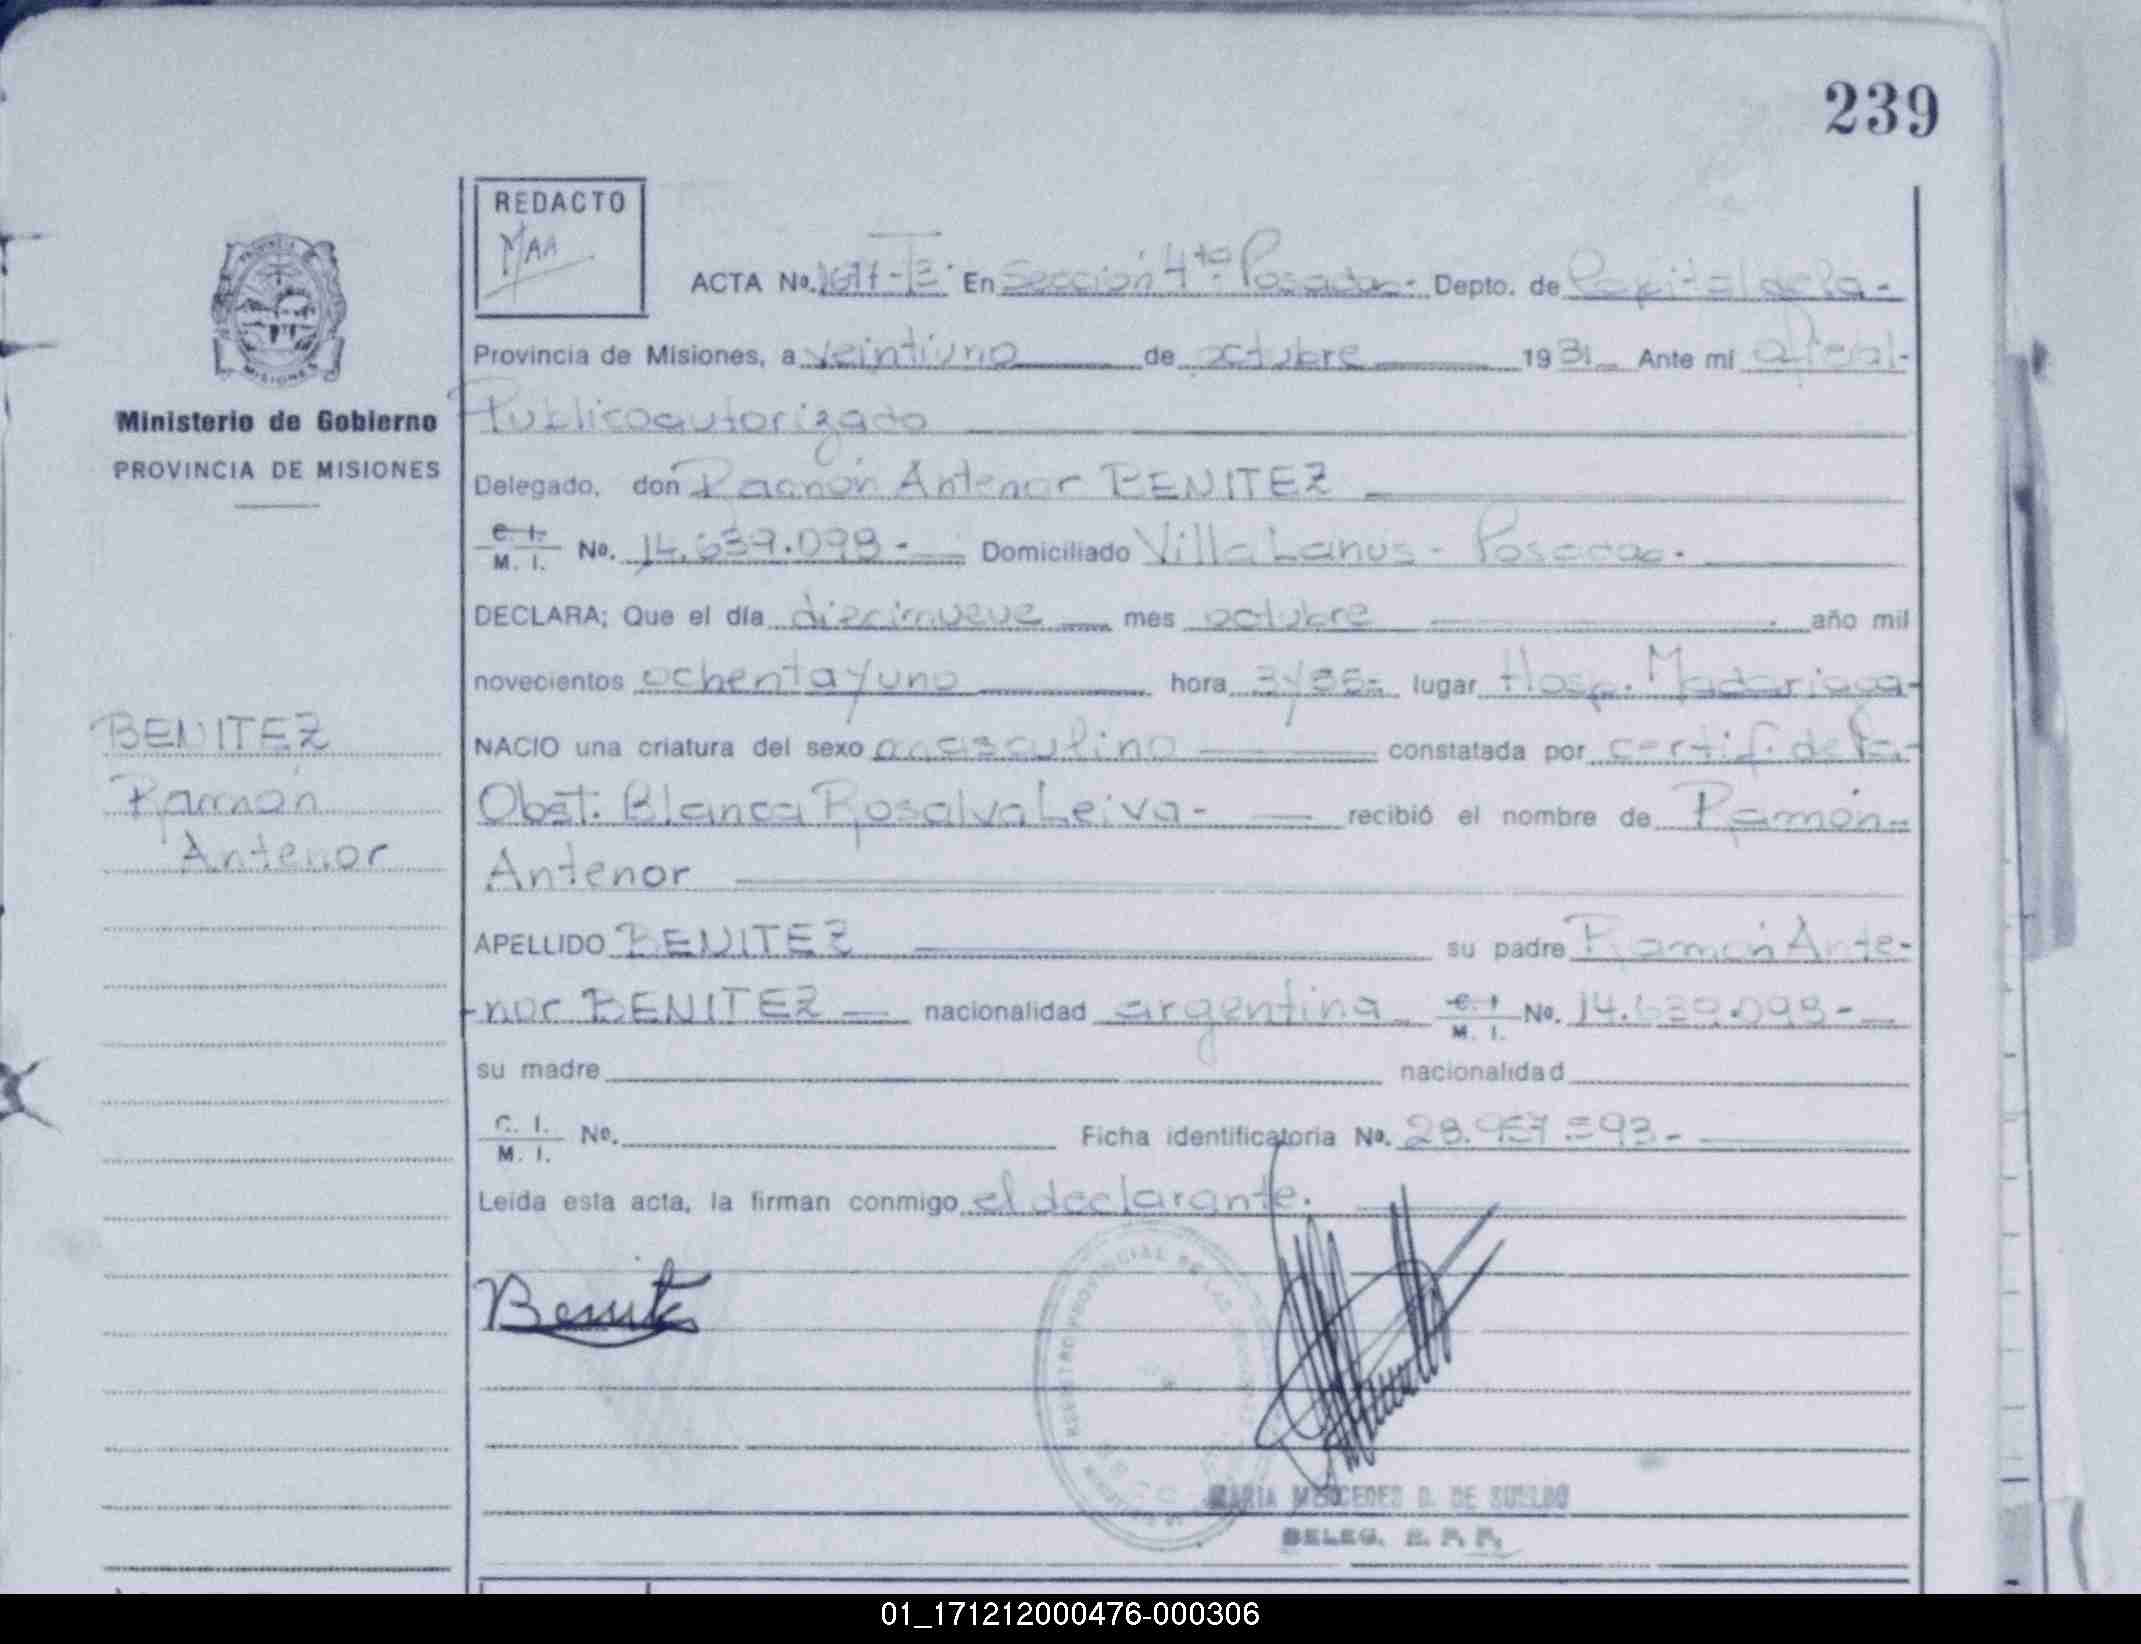 239
REDACTO
MAA
ACTA No. 1677-TE. En Sección 4ta. Posadas.- Depto. de Capital de la-
Provincia de Misiones, a veintiuno de octubre 1981 Ante mi Oficial-
Publico autorizado
Ministerio de Gobierno
PROVINCIA DE MISIONES
Delegado, don Ramón Antenor BENITEZ
C. I. / M. I. No. 14.639.098.- Domiciliado Villa Lanus - Posadas.
DECLARA; Que el día diecinueve mes octubre año mil
novecientos ochenta y uno hora lugar Hosp. Madariaga-
BENITEZ
Ramón
Antenor
NACIO una criatura del sexo masculino constatada por certif. de la-
Obst. Blanca Rosalva Leiva- recibió el nombre de Ramón-
Antenor
APELLIDO BENITEZ su padre Ramón Ante-
-nor BENITEZ nacionalidad argentina C. I / M. I. No. 14.639.098-
su madre nacionalidad
C. I. / M. I. No. Ficha identificatoria No. 28.957.593-
Leida esta acta, la firman conmigo el declarante.
Benitez
REGISTRO PROVINCIAL DE LAS
MARIA MERCEDES D. DE SUELDO
DELEG. R. P. P.
MISIONES
01_171212000476-000306